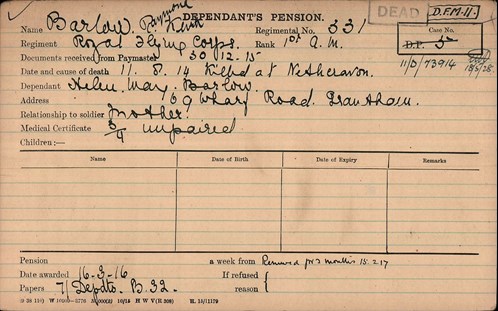 DEPENDANT'S PENSION.
DEAD
D.F.M.11.
Name Barlow, Raymond Keith
Regimental No. 331
Case No.
Regiment Royal Flying Corps.
Rank 1st A. M.
D.P.
11/D/73914
Documents received from Paymaster 30.12.15
Date and cause of death 11. 8. 14 Killed at Netheravon.
Dependant Helen Mary Barlow.
Address 69 Wharf Road, Grantham.
Relationship to soldier Mother.
Medical Certificate unpaired
Children:—
Name Date of Birth Date of Expiry Remarks
Pension a week from Renewed for 3 months 15.2.17
Date awarded 16-3-16 If refused {
Papers 71 Depots. B.32. reason {
H W V (R 308) H. 16/1179